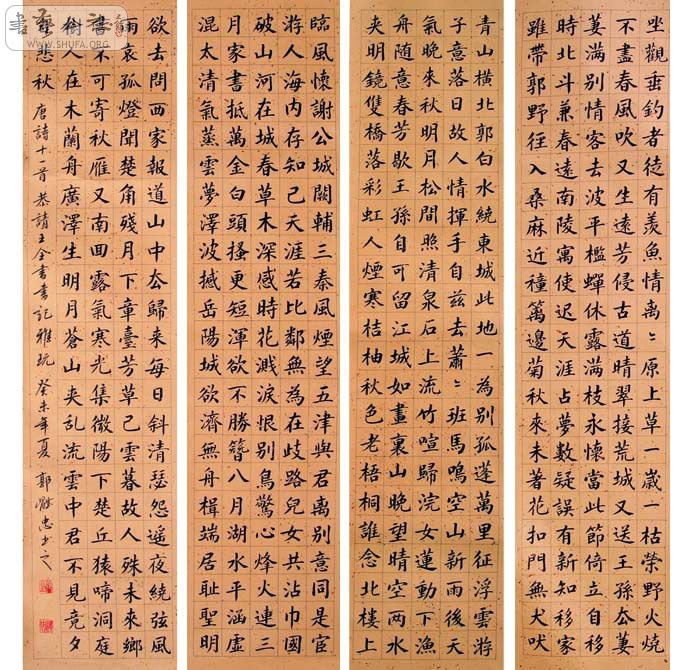 坐觀垂釣者徒有羨魚情離〻原上草一歲一枯榮野火燒
不盡春風吹又生遠芳侵古道晴翠接荒城又送王孫去萋
萋滿別情客去波平檻蟬休露滿枝永懷當此節倚立自移
時北斗兼春遠南陵寓使迟天涯占夢數疑誤有新知移家
雖帶郭野徑入桑麻近種籬邊菊秋來未著花扣門無犬吠
青山橫北郭白水繞東城此地一為別孤蓬萬里征浮雲游
子意落日故人情揮手自茲去蕭〻班馬鳴空山新雨後天
氣晚來秋明月松間照清泉石上流竹喧歸浣女蓮動下漁
舟隨意春芳歇王孫自可留江城如畫裏山晚望晴空兩水
夾明鏡雙橋落彩虹人煙寒桔柚秋色老梧桐誰念北樓上
臨風懷謝公城闕輔三秦風煙望五津與君離別意同是宦
游人海内存知己天涯若比鄰無為在歧路兒女共沾巾國
破山河在城春草木深感時花濺淚恨別鳥驚心烽火連三
月家書抵萬金白頭搔更短渾欲不勝簪八月湖水平涵虛
混太清氣蒸雲夢澤波撼岳陽城欲濟無舟楫端居耻聖明
欲去問西家報道山中去歸來每日斜清瑟怨遥夜繞弦風
雨哀孤燈聞楚角殘月下章臺芳草已雲暮故人殊未來鄉
書不可寄秋雁又南回露氣寒光集微陽下楚丘猿啼洞庭
樹人在木蘭舟廣澤生明月蒼山夾乱流雲中君不見竟夕
自悲秋 唐詩十一首 恭請王全書書記雅玩 癸未年夏 郭 忠書之
WWW.SHUFA.ORG